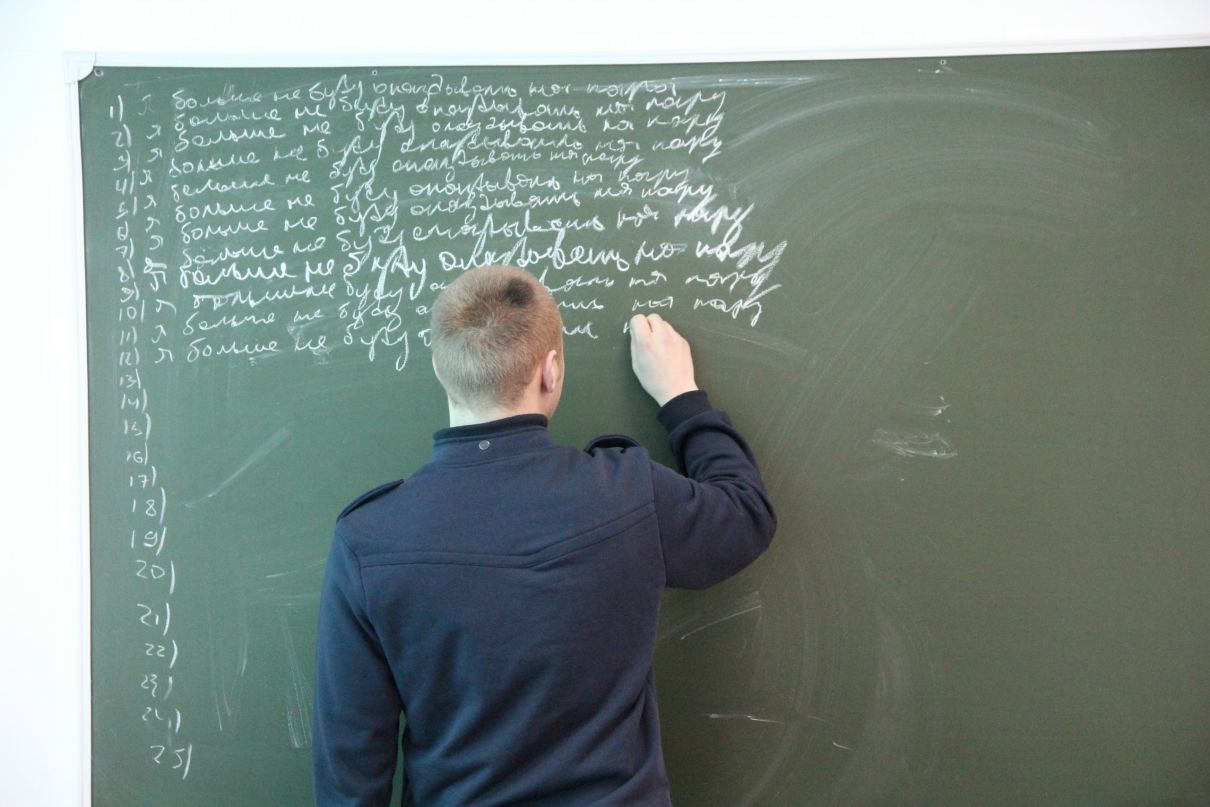 1) Я больше не буду опаздывать на пары
2) Я больше не буду опаздывать на пару
3) Я больше не буду опаздывать на пару
4) Я больше не буду опаздывать на пару
5) Я больше не буду опаздывать на пару
6) Я больше не буду опаздывать на пару
7) Я больше не буду опаздывать на пару
8) Я больше не буду опаздывать на пару
9) Я больше не буду опаздывать на пару
10) Я больше не буду на пару
11) Я больше не буду на пару
12) Я больше не буду
13)
14)
15)
16)
17)
18)
19)
20)
21)
22)
23)
24)
25)